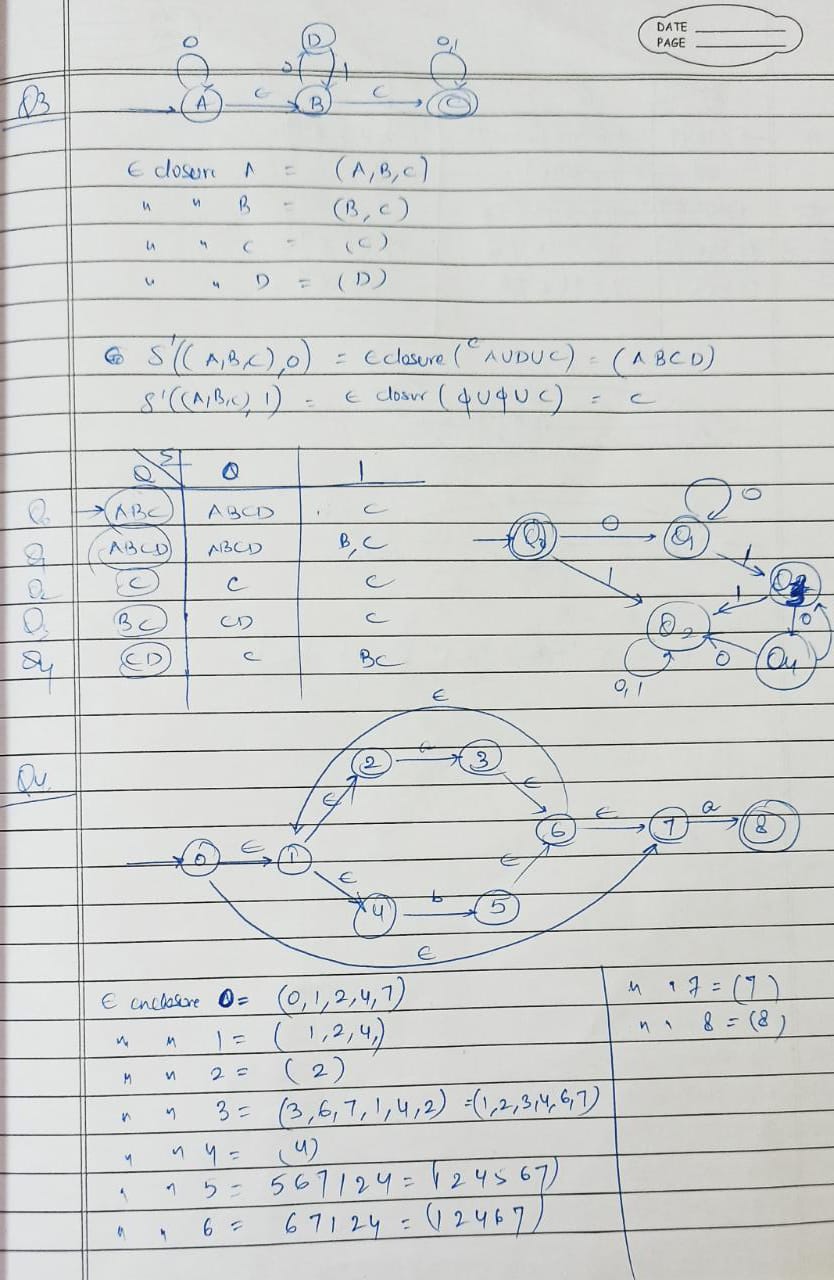 DATE
PAGE
Q3
0 D 0,1
0 1
A ϵ B ϵ C
ϵ closure A = (A,B,C)
" " B = (B,C)
" " C = (C)
" " D = (D)
δ'((A,B,C),0) = ϵ closure (A∪D∪C) = (ABCD)
δ'((A,B,C),1) = ϵ closur (ϕ∪ϕ∪C) = C
Q Σ 0 1
Q0 → ABC ABCD C
Q1 ABCD ABCD B,C
Q2 C C C
Q3 BC CD C
Q4 CD C BC
0
Q0 0 Q1
1 1
1 Q3
Q2 0
0 Q4
0,1
Q4.
ϵ
2 a 3
ϵ ϵ
0 ϵ 1 6 ϵ 7 a 8
ϵ ϵ
4 b 5
ϵ
ϵ enclosure 0 = (0,1,2,4,7)
" " 1 = (1,2,4,)
" " 2 = (2)
" " 3 = (3,6,7,1,4,2) = (1,2,3,4,6,7)
" " 4 = (4)
" " 5 = 567124 = (124567)
" " 6 = 67124 = (12467)
" " 7 = (7)
" " 8 = (8)